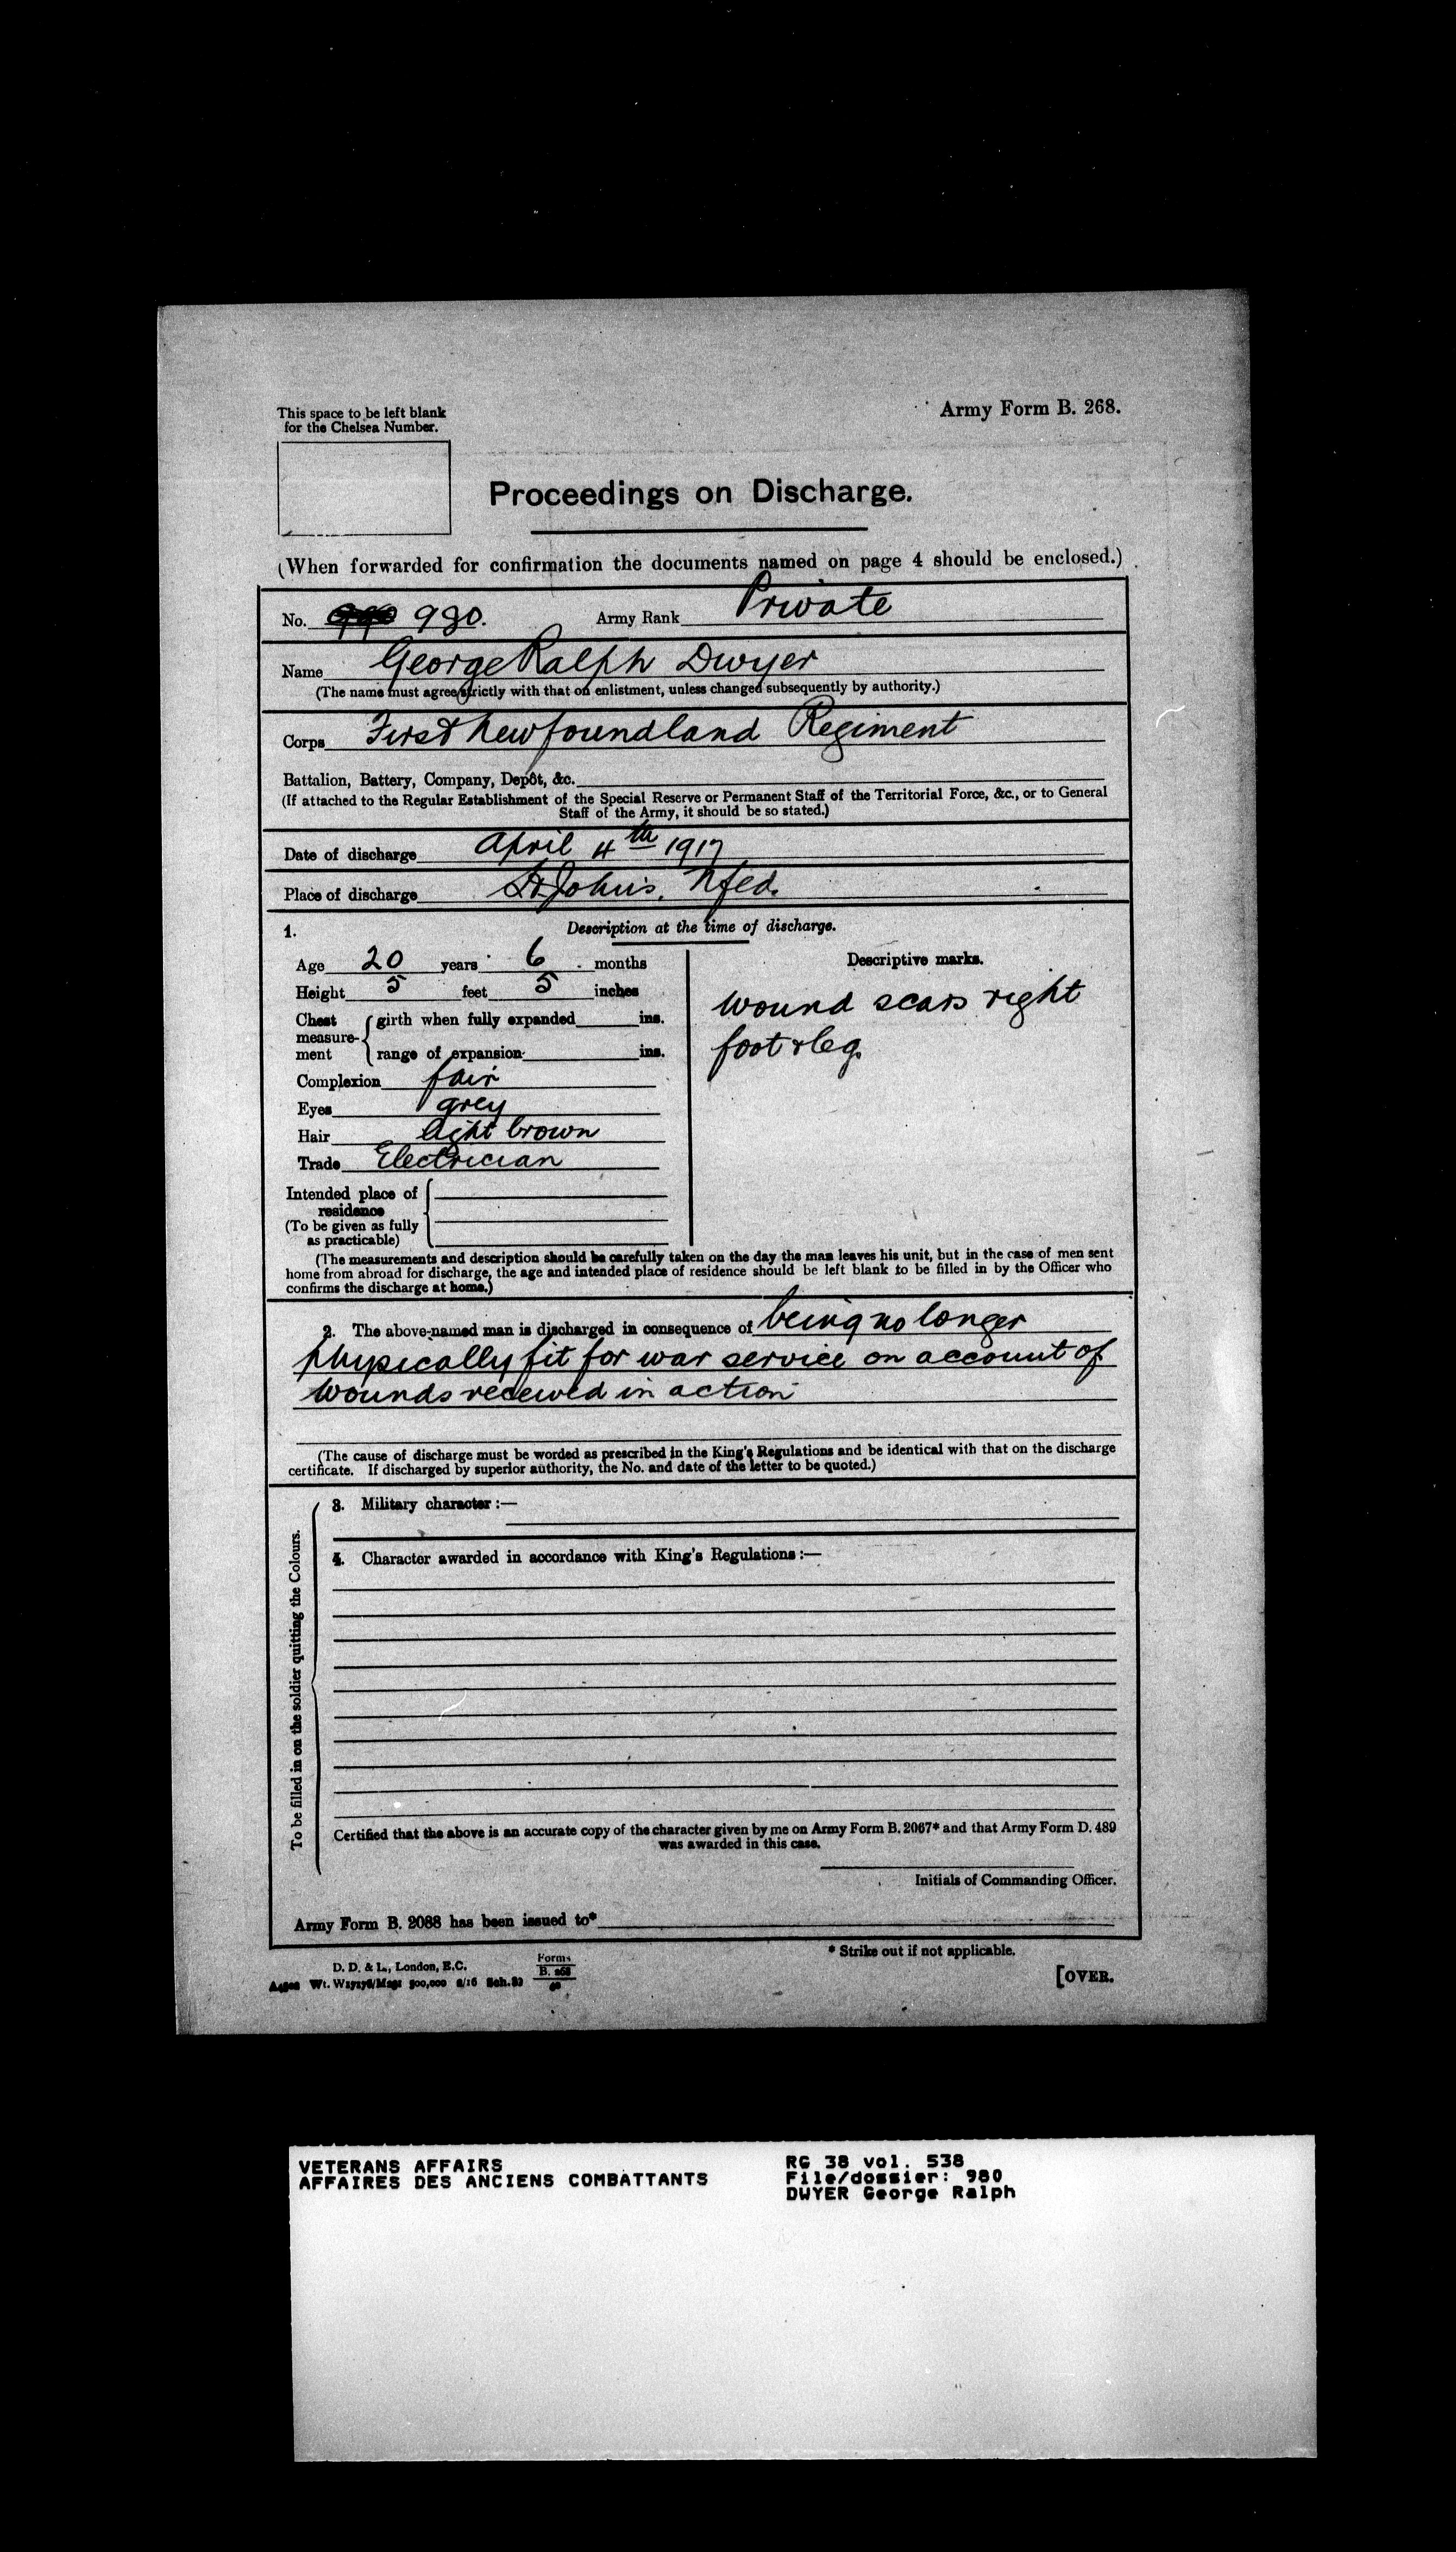 This space to be left blank
for the Chelsea Number.
Army Form B. 268.
Proceedings on Discharge.
(When forwarded for confirmation the documents named on page 4 should be enclosed.)
No. 980. Army Rank Private
Name George Ralph Dwyer
(The name must agree strictly with that on enlistment, unless changed subsequently by authority.)
Corps First Newfoundland Regiment
Battalion, Battery, Company, Depôt, &c.
(If attached to the Regular Establishment of the Special Reserve or Permanent Staff of the Territorial Force, &c., or to General
Staff of the Army, it should be so stated.)
Date of discharge April 4th 1917
Place of discharge St John's. Nfld.
1. Description at the time of discharge.
Age 20 years 6 months
Height 5 feet 5 inches
Chest measurement girth when fully expanded ins.
range of expansion ins.
Complexion fair
Eyes grey
Hair light brown
Trade Electrician
Intended place of
residence
(To be given as fully
as practicable)
Descriptive marks.
wound scars right
foot & leg.
(The measurements and description should be carefully taken on the day the man leaves his unit, but in the case of men sent
home from abroad for discharge, the age and intended place of residence should be left blank to be filled in by the Officer who
confirms the discharge at home.)
2. The above-named man is discharged in consequence of being no longer
physically fit for war service on account of
wounds received in action
(The cause of discharge must be worded as prescribed in the King's Regulations and be identical with that on the discharge
certificate. If discharged by superior authority, the No. and date of the letter to be quoted.)
To be filled in on the soldier quitting the Colours.
3. Military character :—
4. Character awarded in accordance with King's Regulations :—
Certified that the above is an accurate copy of the character given by me on Army Form B. 2067* and that Army Form D. 489
was awarded in this case.
Initials of Commanding Officer.
Army Form B. 2088 has been issued to*
* Strike out if not applicable.
D. D. & L., London, E.C.
500,000 8/16 Sch. 53
Forms
B. 268
[OVER.
VETERANS AFFAIRS
AFFAIRES DES ANCIENS COMBATTANTS
RG 38 vol. 538
File/dossier: 980
DWYER George Ralph